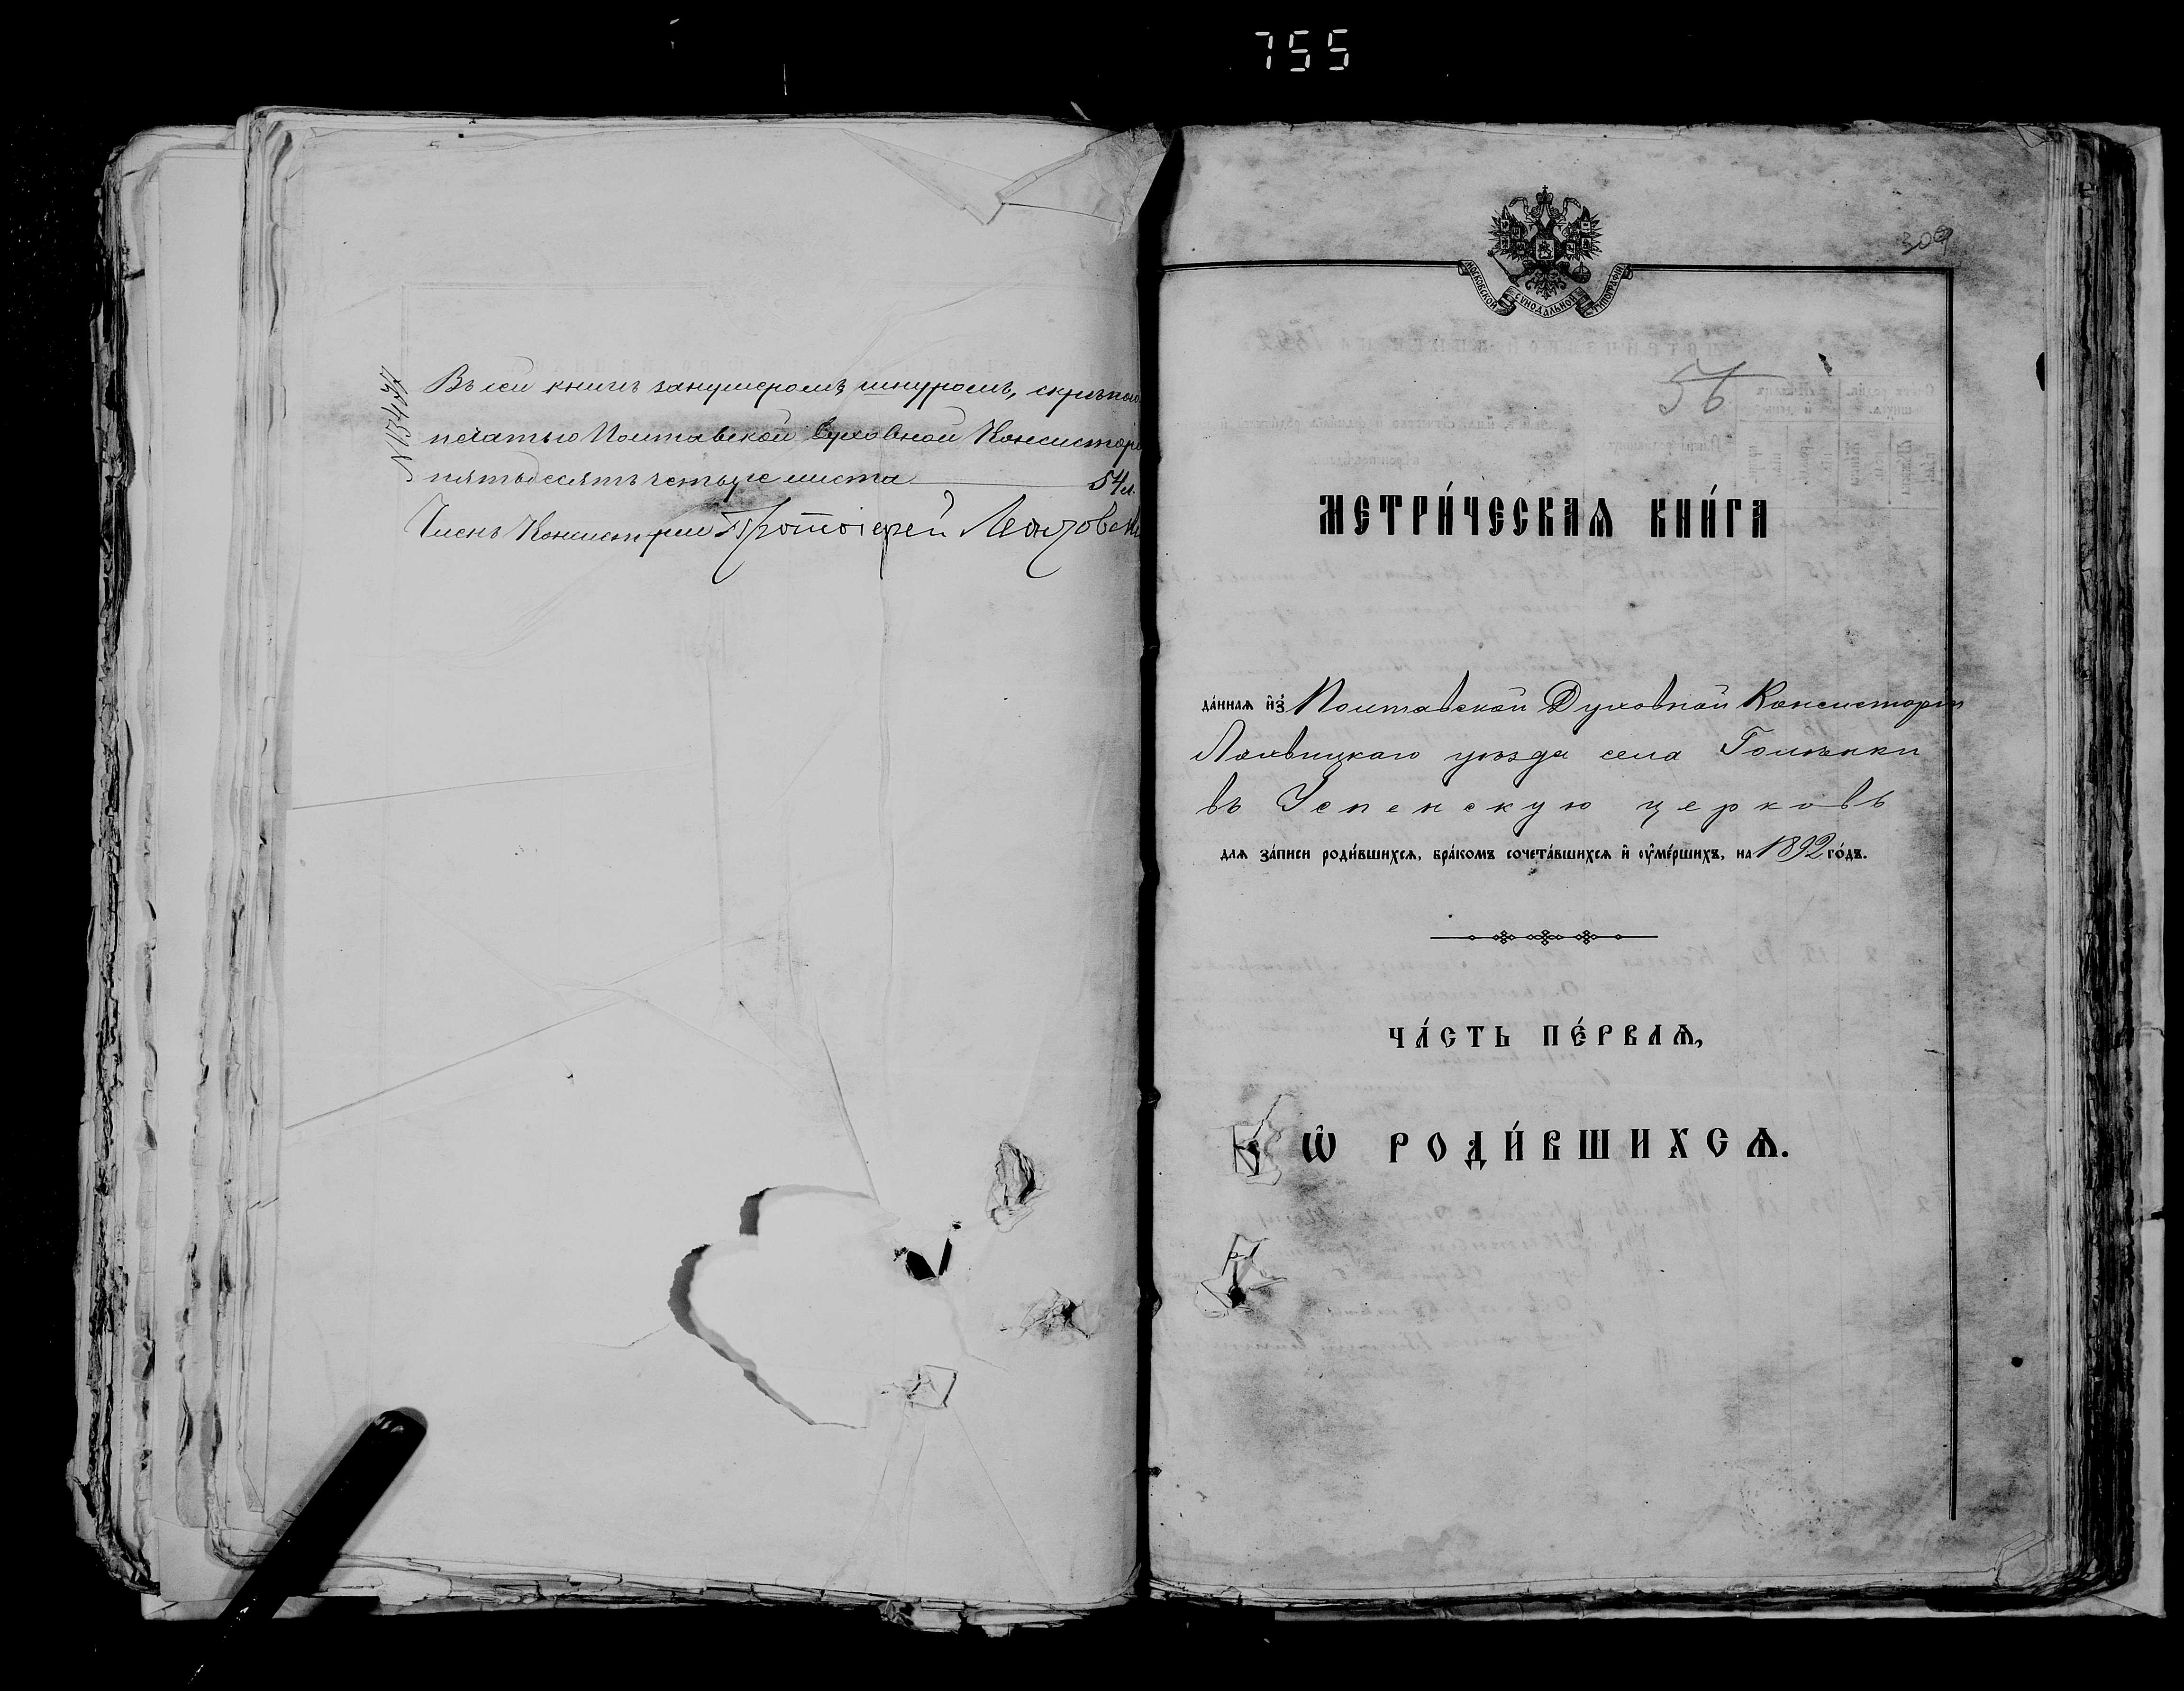 755
Въ сей книгѣ занумеромъ, шнуромъ, скрѣпою
печатью Полтавской Духовной Консисторі
пятьдесятъ четыре листа 54 л.
Членъ Консисторіи Протоіерей
№ 13437
309
МОСКОВСКОЙ СѴНОДАЛЬНОЙ ТИПОГРАФІИ
56
МЕТРИ́ЧЕСКАѦ КНИ́ГА
да́ннаѧ и҆з̾ Полтавской Духовной Консисторіи
Лохвицкаго уѣзда села Голѣнки
въ Успенскую церковь
длѧ за́писи роди́вшихсѧ, бра́комъ сочета́вшихсѧ и҆ ᲂу҆ме́ршихъ, на 1892 го́дъ.
ЧА́СТЬ ПЕ́РВАѦ,
Ѽ РОДИ́ВШИХСѦ.